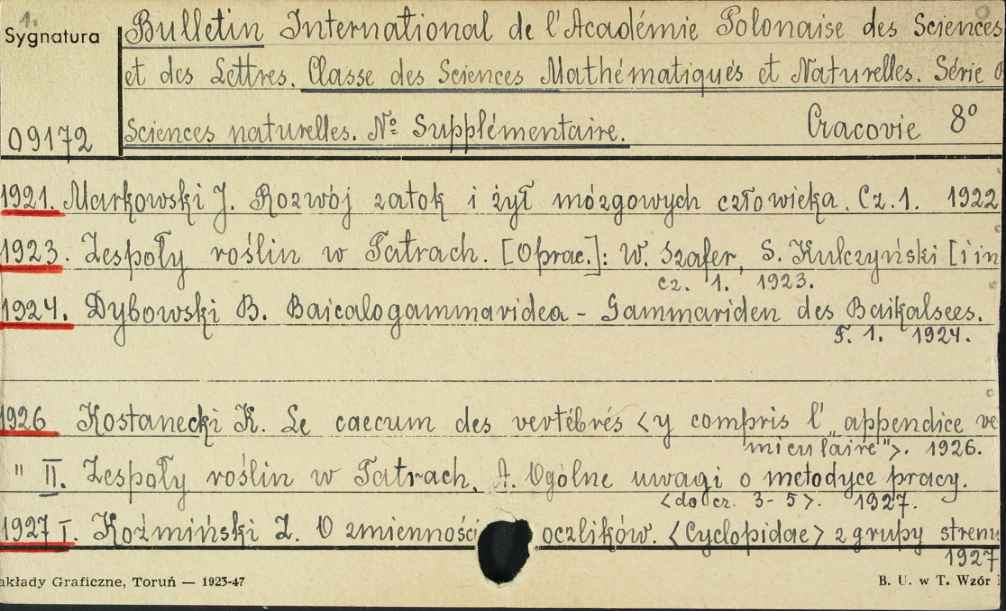 1.
Sygnatura
Bulletin International de l'Académie Polonaise des Sciences
et des Lettres. Classe des Sciences Mathématiques et Naturelles. Série
09172
Sciences naturelles. No Supplémentaire. Cracovie 8°
1921. Markowski J. Rozwój zatok i żył mózgowych człowieka. Cz. 1. 1922
1923. Zespoły roślin w Tatrach. [Oprac.]: W. Szafer, S. Kulczyński [i in
cz. 1. 1923.
1924. Dybowski B. Baicalogammaridea - Gammariden des Baikalsees.
T. 1. 1924.
1926 Kostanecki K. Le caecum des vertébrés <y compris l' „appendice ve
miculaire">. 1926.
" II. Zespoły roślin w Tatrach. A. Ogólne uwagi o metodyce pracy.
<do cz. 3-5>. 1927.
1927 I. Koźmiński Z. O zmienności oczlików. <Cyclopidae> z grupy stren
1927
akłady Graficzne, Toruń — 1925-47
B. U. w T. Wzór